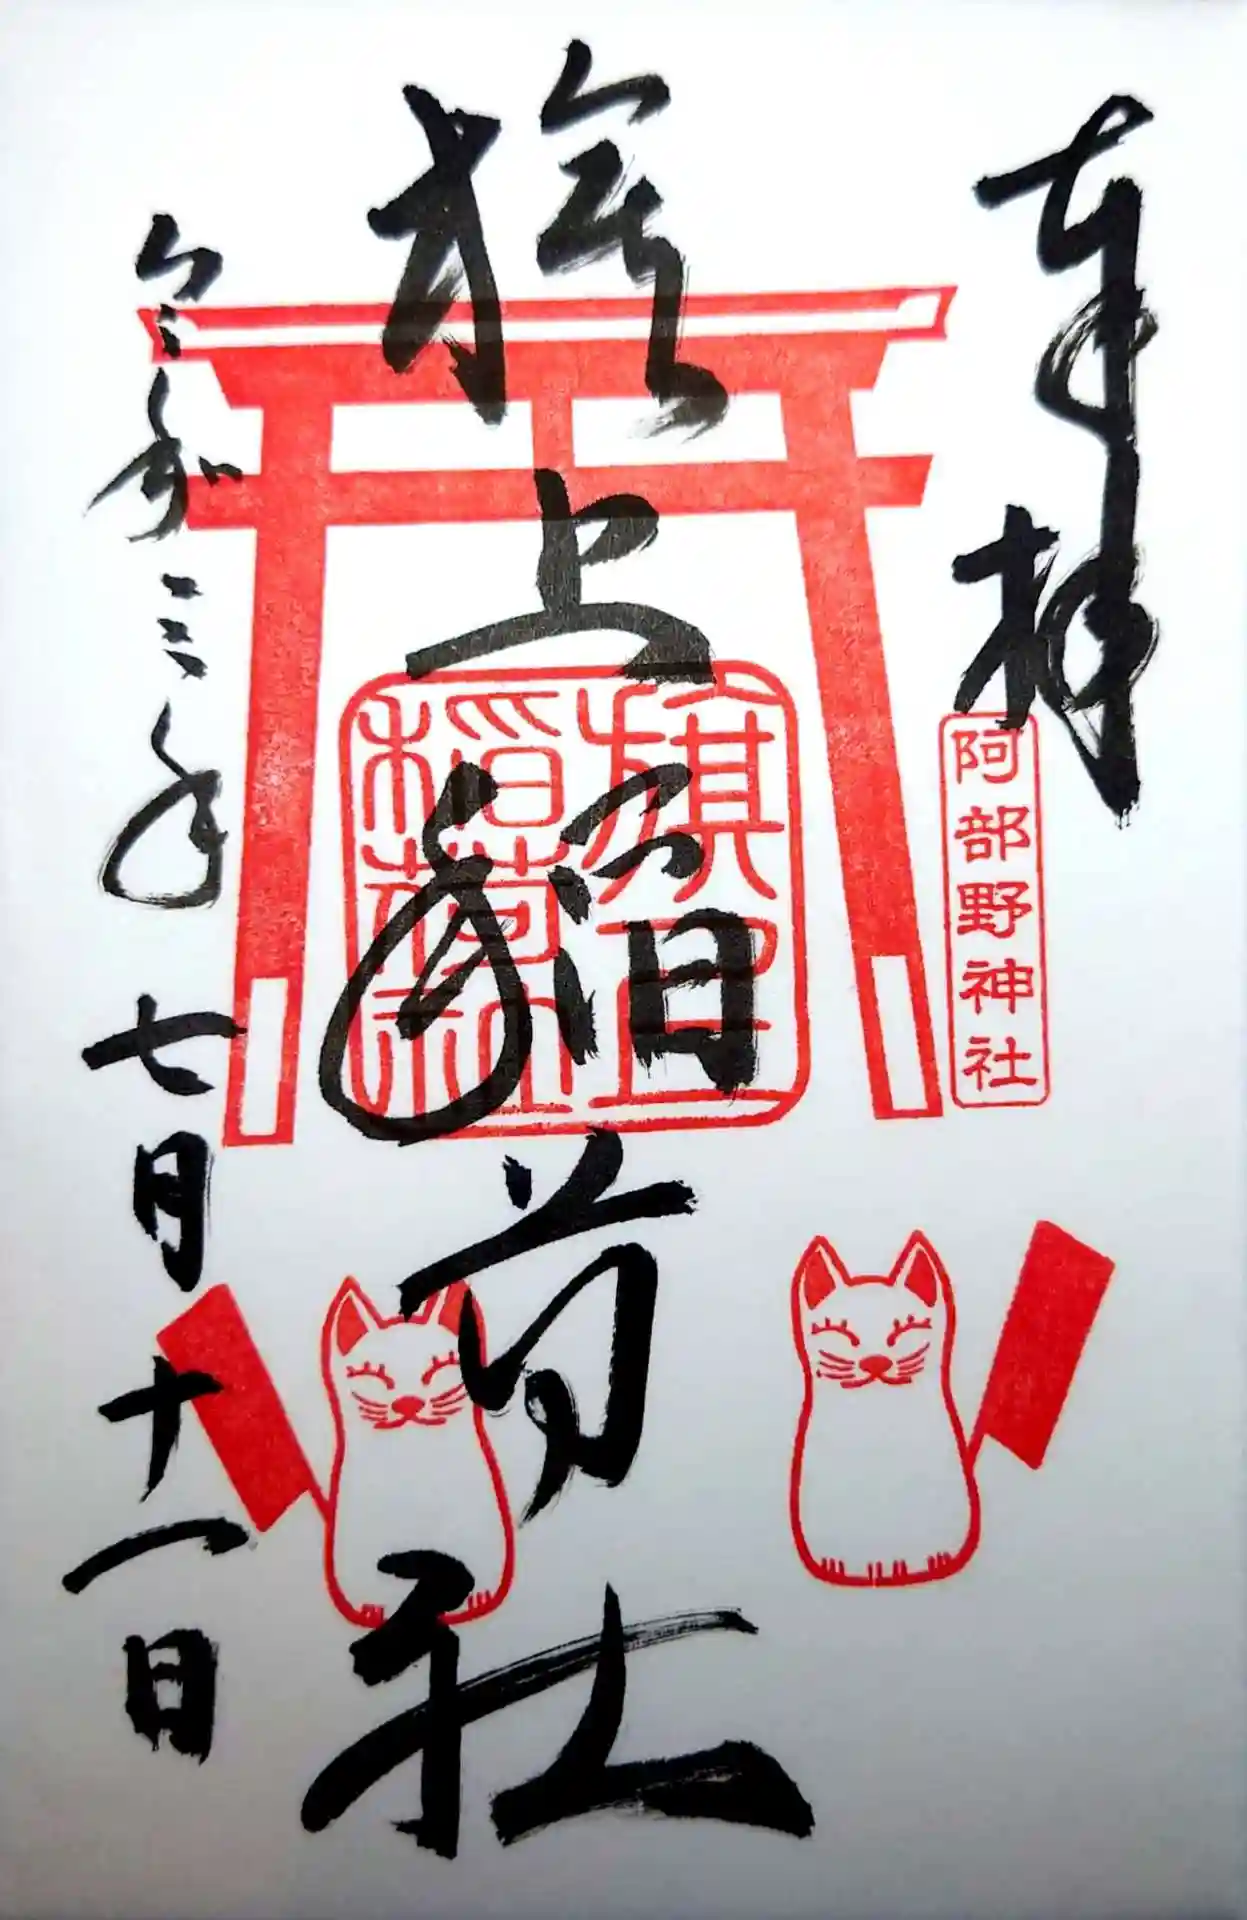 奉拝
阿部野神社
旗上稲荷社
旗上
稲荷社
令和三年七月十一日